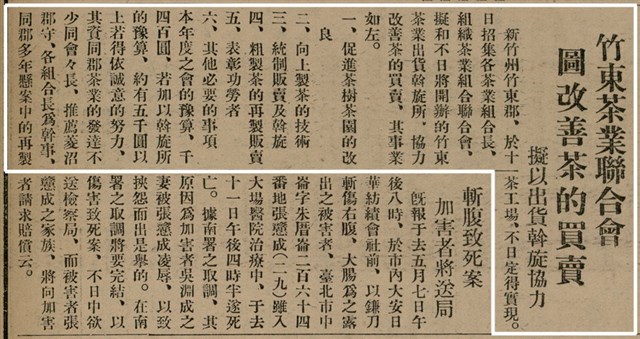 竹東茶業聯合會
圖改善茶的買賣
擬以出貨斡旋協力
新竹州竹東郡、於十
日招集各茶業組合長、
組織茶業組合聯合會、
擬和不日將開辦的竹東
茶業出貨斡旋所、協力
改善茶的買賣、其事業
如左。
一、促進茶樹茶園的改
良
二、向上製茶的技術
三、統制販賣及斡旋
四、粗製茶的再製販賣
五、表彰功勞者
六、其他必要的事項
本年度之會的豫算、千
四百圓、若加以斡旋所
的豫算、約有五千圓以
上若得依誠意的努力、
其資同郡茶業的發達不
少同會々長、推薦菱沼
郡守、各組合長爲幹事、
同郡多年懸案中的再製
茶工場、不日定得實現。
斬腹致死案
加害者將送局
既報于去五月七日午
後八時、於市內大安日
華紡績會社前、以鎌刀
斬傷右腹、大腸爲之露
出之被害者、臺北市中
崙字朱厝崙二百六十四
番地張戇成(二九)雖入
大場醫院治療中、于去
十一日午後四時半遂死
亡。據南署之取調、其
原因爲加害者吳淵成之
妻被張戇成凌辱、以致
挾怨而出是擧的。在南
署之取調將要完結、以
傷害致死案、不日中欲
送檢察局、而被害者張
戇成之家族、將向加害
者請求賠償云。